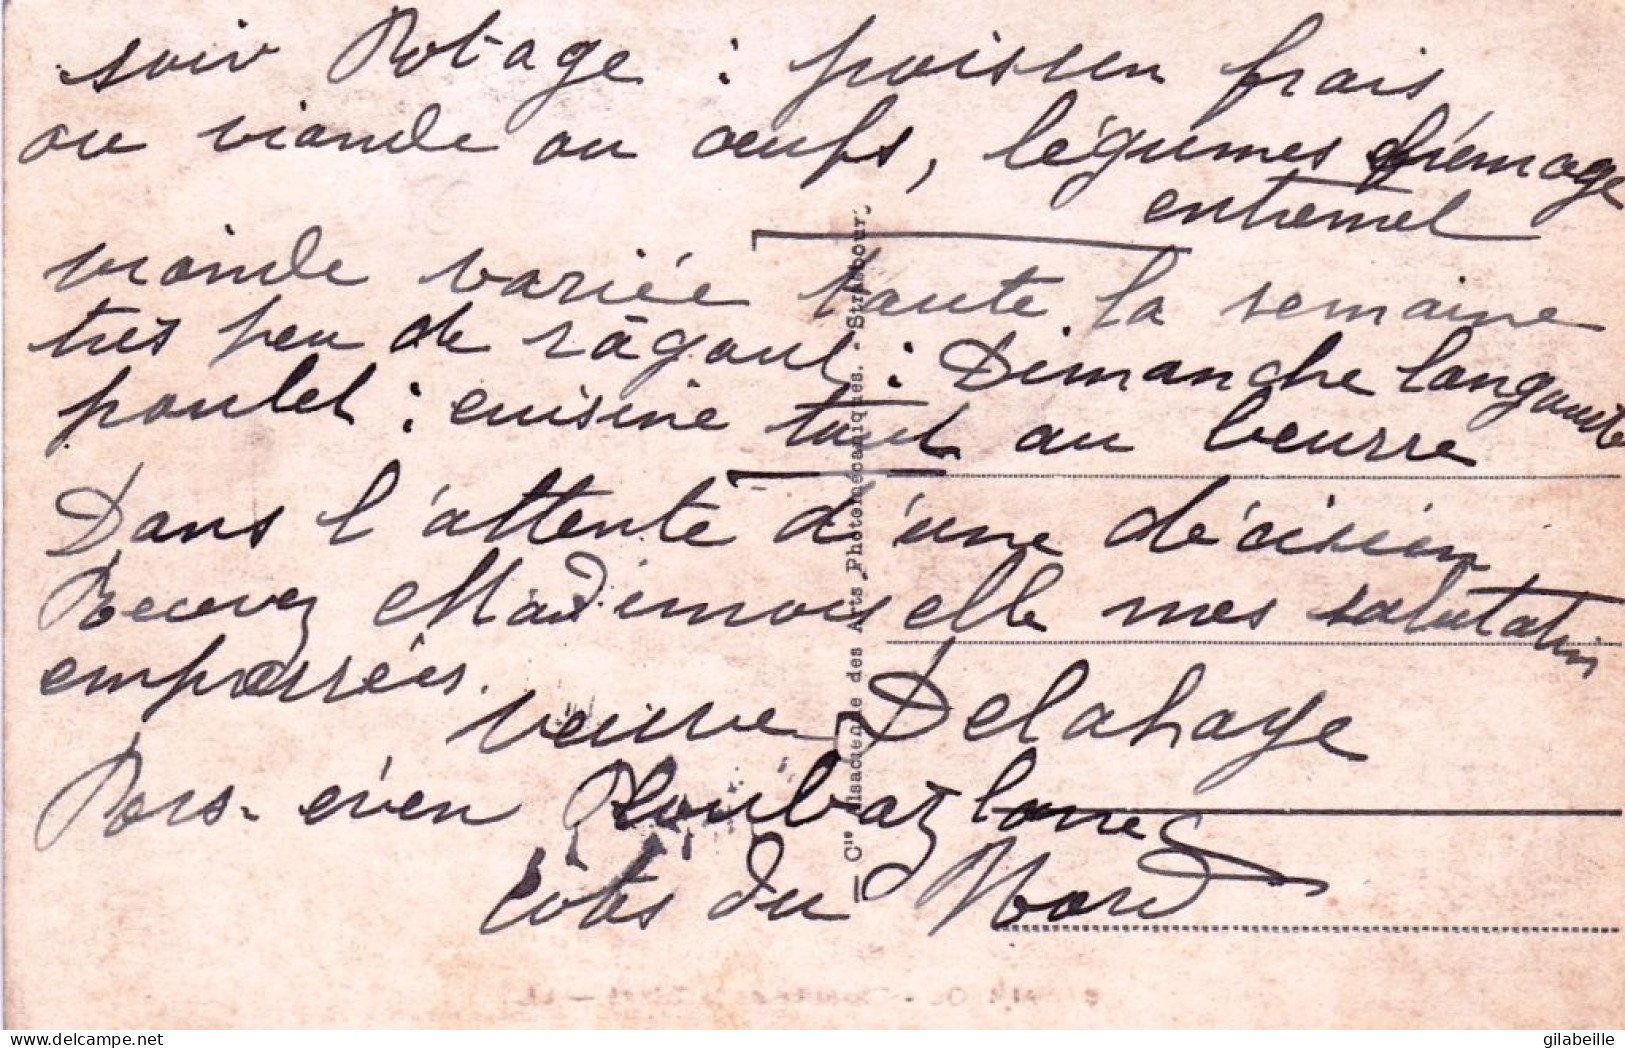 soir Potage : poisson frais
ou viande ou œufs, légumes frémage
entremel
viande variée toute la semaine
très peu de ragout : Dimanche langouste
poulet : cuisine tout au beurre
Dans l'attente d'une décision
Recevez Mademoiselle mes salutation
empressées.
veuve Delahaye
Pors-even Ploubazlanec
Côtes du Nord
— Cie Alsacienne des Arts Photomécaniques. - Strasbourg
delcampe.net
gilabeille